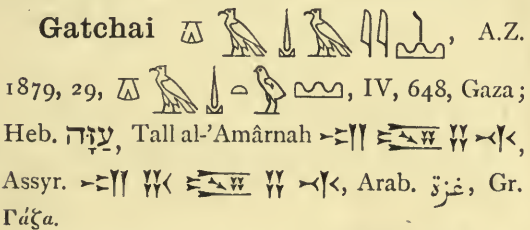 Gatchai 𓎼𓄿𓍑𓄿𓇌𓌙𓈉, A.Z.
1879, 29, 𓎼𓄿𓍑𓏏𓅱𓈉, IV, 648, Gaza;
Heb. עַזָּה, Tall al-’Amârnah ,
Assyr. , Arab. غزة, Gr.
Γάζα.